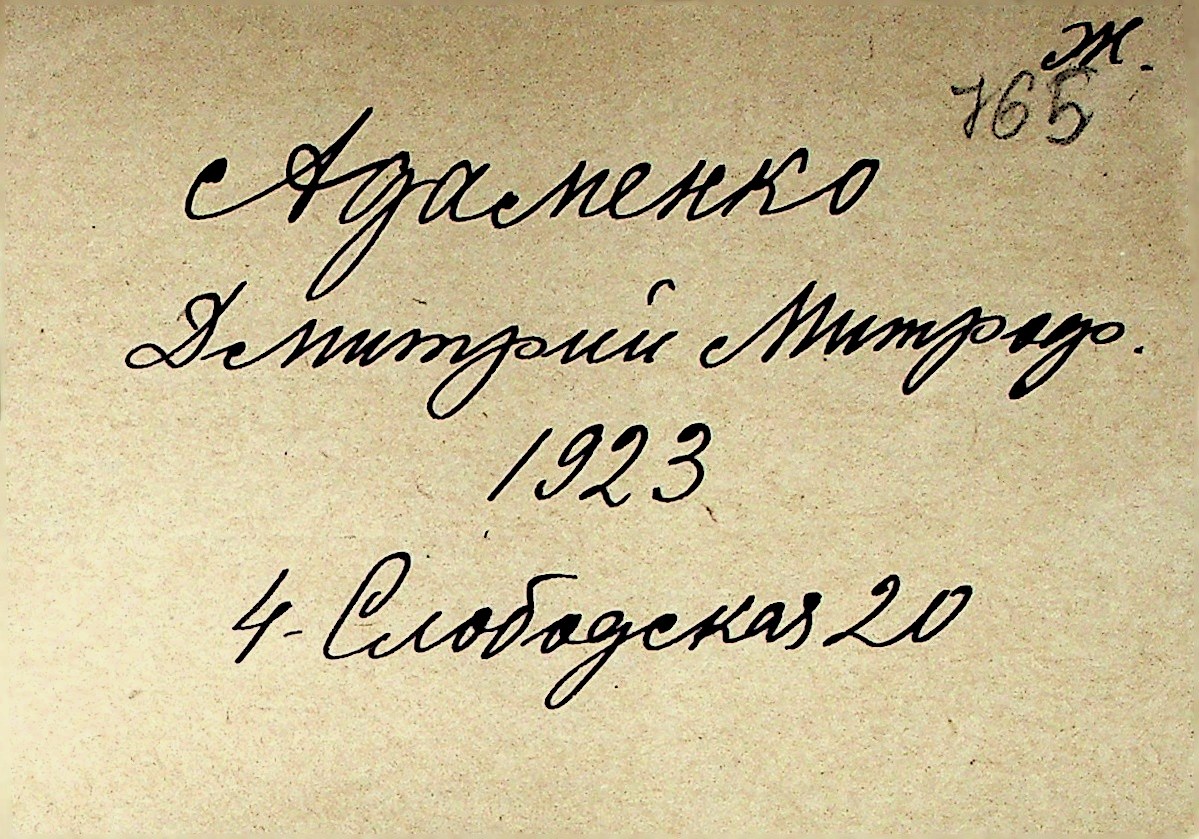 ж.
765
Адаменко
Дмитрий Митроф.
1923
4-Слободская 20